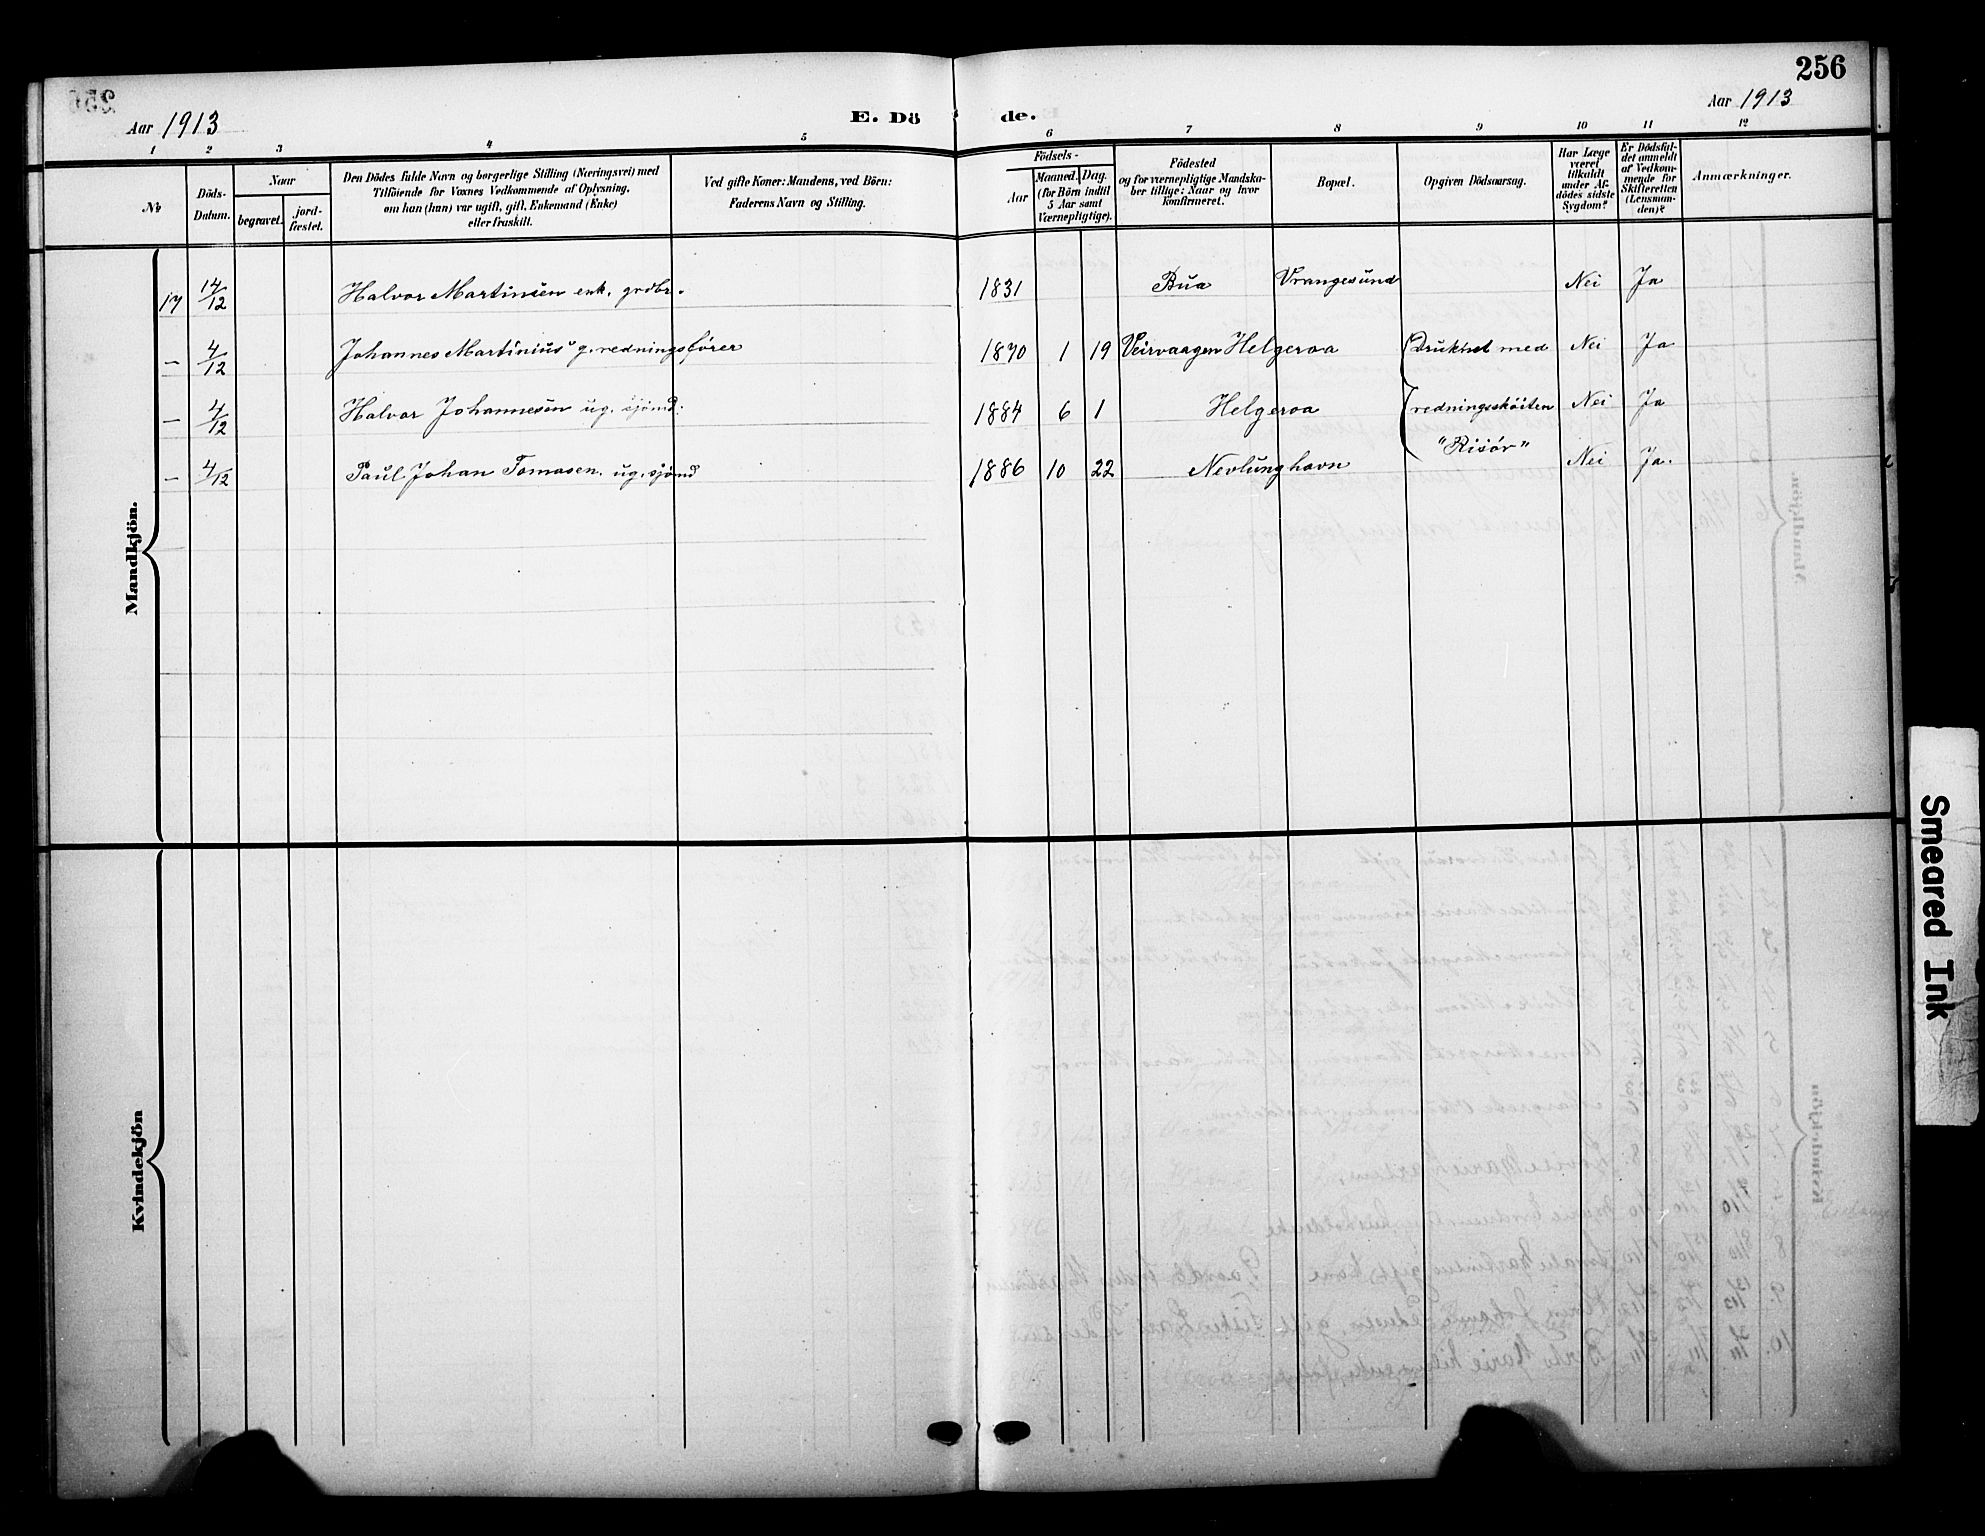 256
Aar 1913
E. Döde.
Aar 1913
1 2 3 4 5 6 7 8 9 10 11 12
№
Döds-Datum.
Naar
begravet.
jord-fæstet.
Den Dödes fulde Navn og borgerlige Stilling (Næringsvei) med
Tilföiende for Voxnes Vedkommende af Oplysning,
om han (hun) var ugift, gift, Enkemand (Enke)
eller fraskilt.
Ved gifte Koner: Mandens, ved Börn:
Faderens Navn og Stilling.
Födsels-
Aar
Maaned. Dag.
(for Börn indtil
5 Aar samt
Værnepligtige).
Födested
og for værnepligtige Mandska-
ber tillige: Naar og hvor
konfirmeret.
Bopæl.
Opgiven Dödsaarsag.
Har Læge
været
tilkaldt
under Af-
dödes sidste
Sygdom?
Er Dödsfal-
det anmeldt
af Vedkom-
mende for
Skifteretten
(Lensman-
den)?
Anmærkninger.
Mandkjön.
17 14/12 Halvor Martinsen enk. grdbr. 1831 Bua Vrangesund Nei Ja
— 4/12 Johannes Martinius' g. redningsfører 1870 1 19 Veirvaagen Helgeroa Druknet med Nei Ja
— 4/12 Halvor Johannesen ug. sjømd: 1884 6 1 Helgeroa redningsskøiten Nei Ja
"Risør"
— 4/12 Paul Johan Tomasen. ug. sjømd 1886 10 22 Nevlunghavn Nei Ja.
Kvindekjön
Smeared Ink